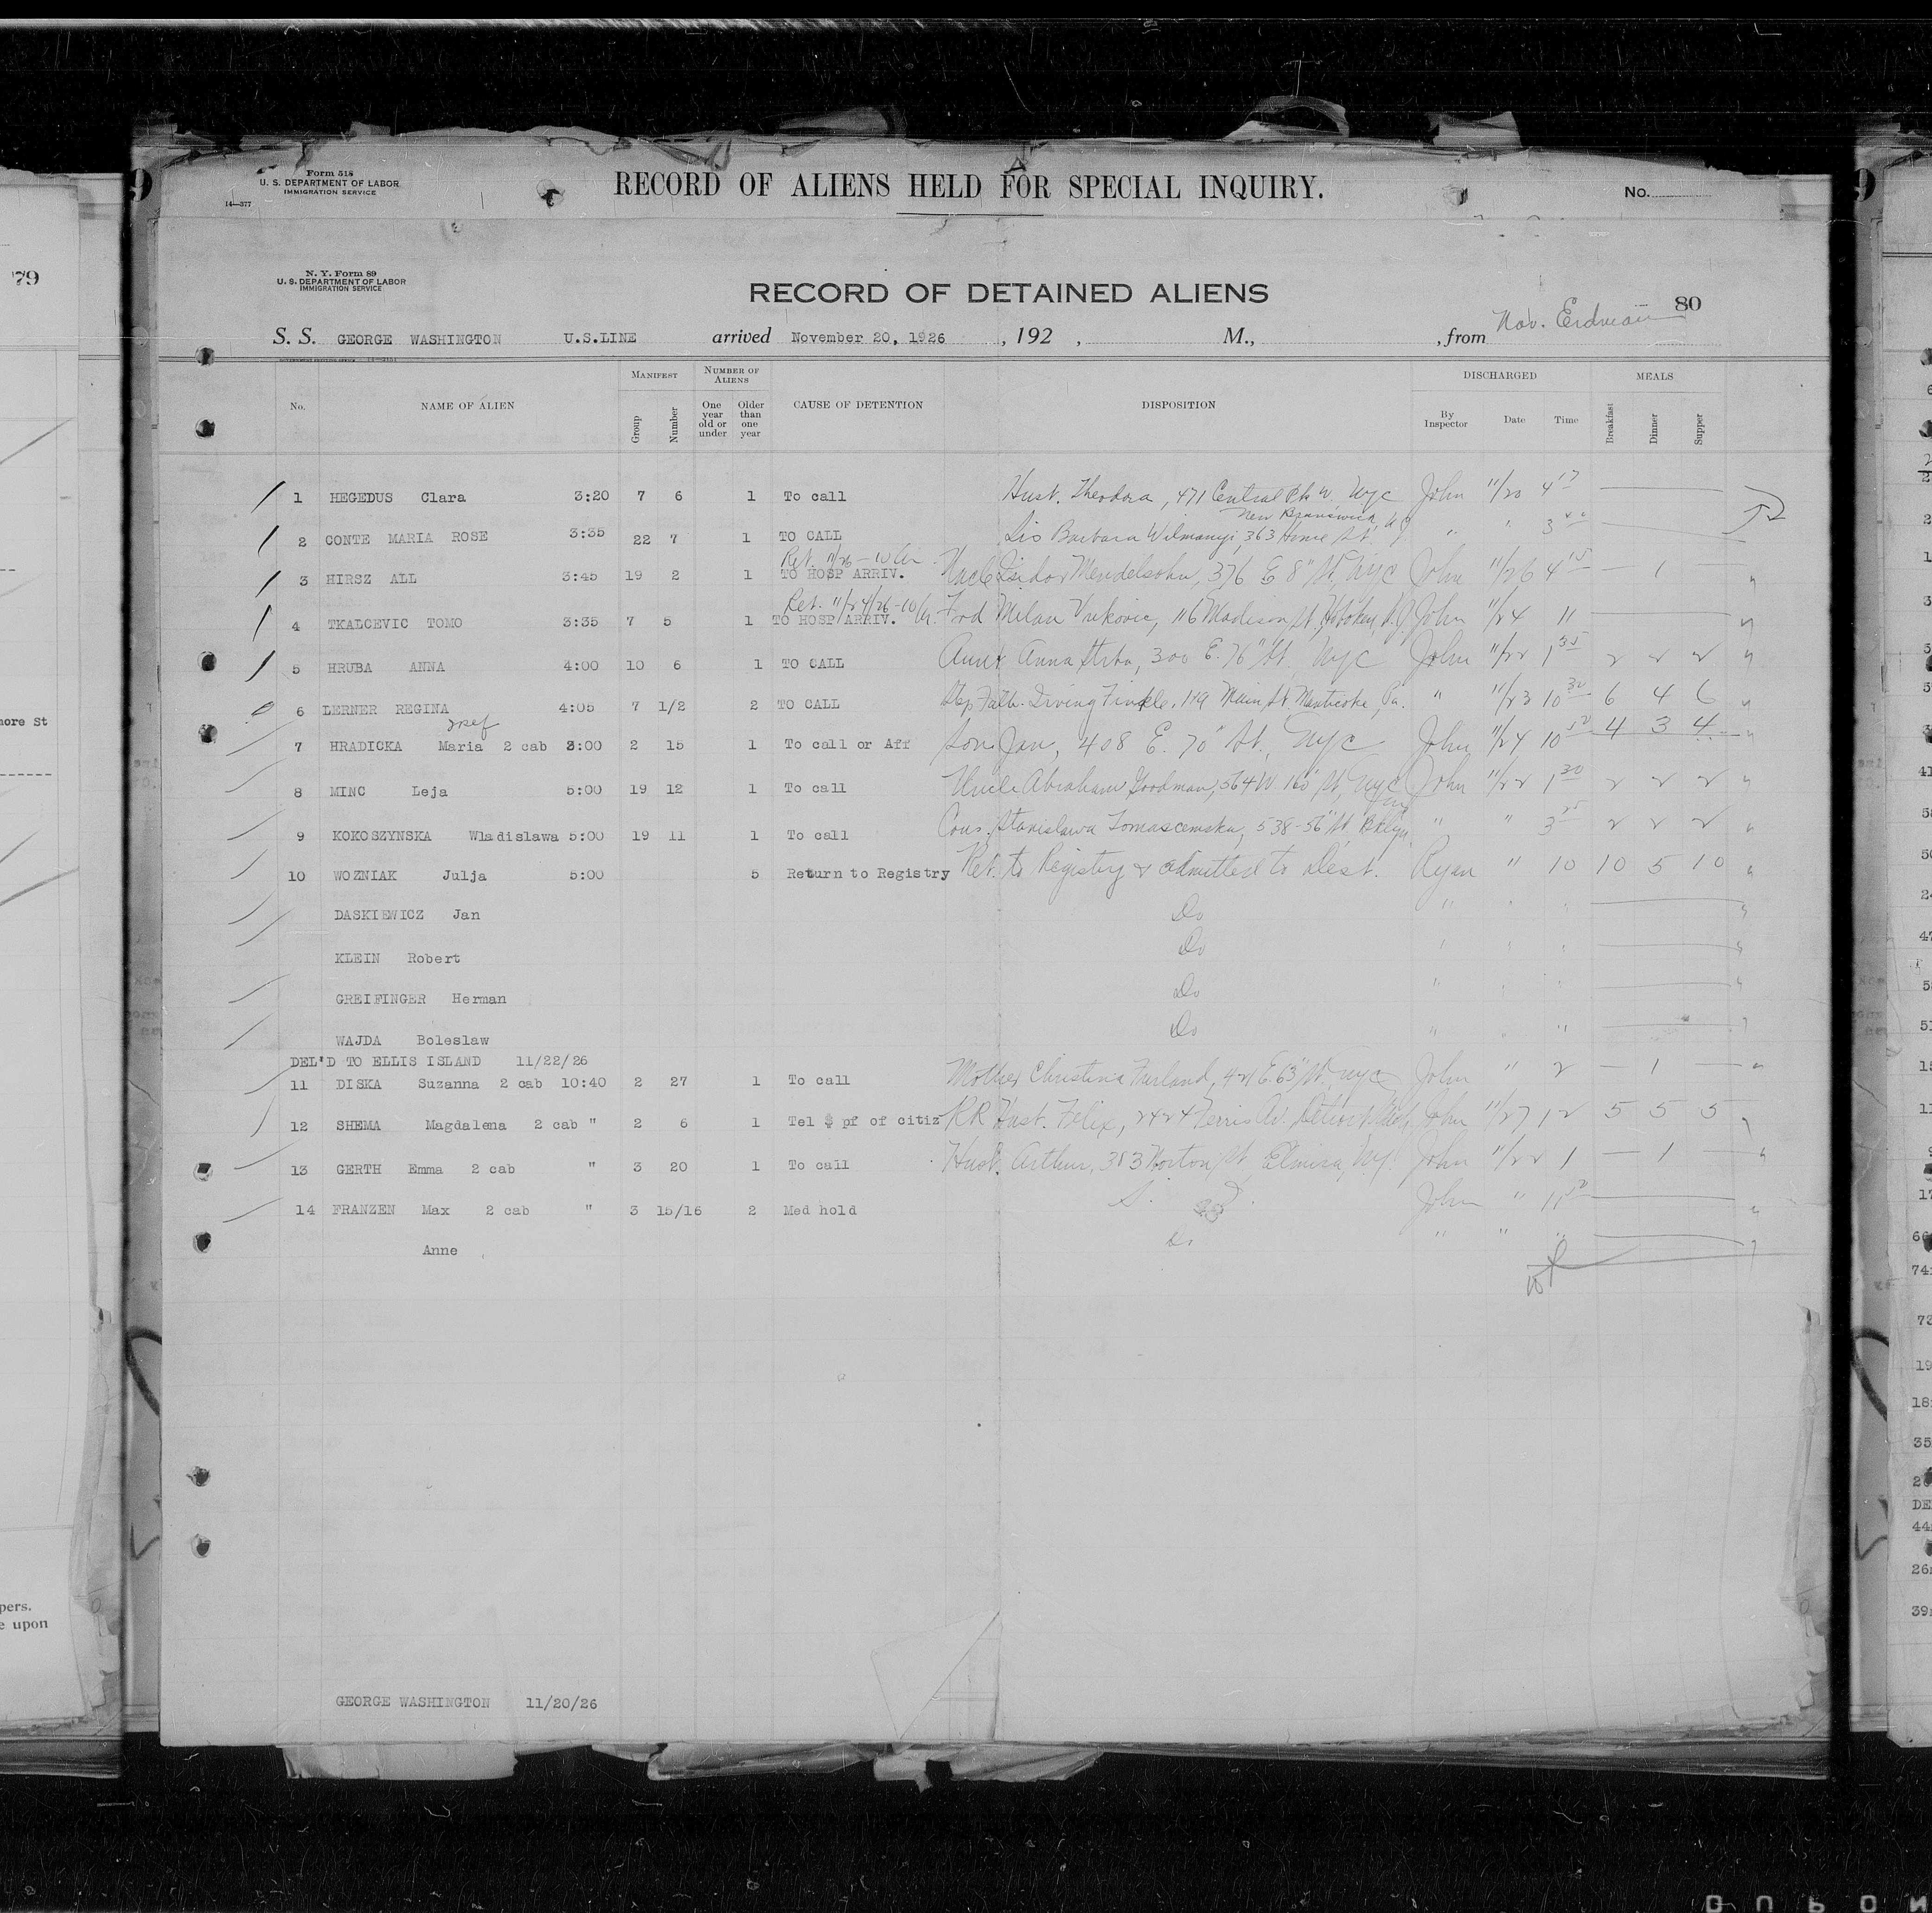 Form 518
U. S. DEPARTMENT OF LABOR
IMMIGRATION SERVICE
14—377
RECORD OF ALIENS HELD FOR SPECIAL INQUIRY.
No.
79
N. Y. Form 89
U. S. DEPARTMENT OF LABOR
IMMIGRATION SERVICE
RECORD OF DETAINED ALIENS
80
S. S. GEORGE WASHINGTON U.S.LINE arrived November 20, 1926 , 192 , M., , from Nov.
No. NAME OF ALIEN MANIFEST Group Number NUMBER OF ALIENS One year old or under Older than one year CAUSE OF DETENTION DISPOSITION DISCHARGED By Inspector Date Time MEALS Breakfast Dinner Supper
1 HEGEDUS Clara 3:20 7 6 1 To call Husb. Theodora, 471 Central Pk W. NYC John 11/20 4 17
New Brunswick NJ
2 CONTE MARIA ROSE 3:35 22 7 1 TO CALL Sis Barbara 363 St " " 3
Ret. 11/26 - 10
3 HIRSZ ALL 3:45 19 2 1 TO HOSP ARRIV. Uncle Isidor Mendelsohn, 376 E 8" St, NYC John 11/26 4 15 — 1
Ret. 11/24/26 - 10
4 TKALCEVIC TOMO 3:35 7 5 1 TO HOSP ARRIV. Frd Milan 116 Madison St, Hoboken, N.J. John 11/24 11
5 HRUBA ANNA 4:00 10 6 1 TO CALL Anna 300 E. 76" St. NYC John 11/22 1 35 2 2 2
6 LERNER REGINA 4:05 7 1/2 2 TO CALL Stp Fath. Irving Finkle, 119 Main St. Nanticoke, Pa. " 11/23 10 30 6 4 6
7 HRADICKA Maria 2 cab 3:00 2 15 1 To call or Aff Son Jan, 408 E. 70" St, NYC John 11/24 10 50 4 3 4
8 MINC Leja 5:00 19 12 1 To call Uncle Abraham Goodman, 564 W. 160 St, NYC John 11/22 1 30 2 2 2
9 KOKOSZYNSKA Wladislawa 5:00 19 11 1 To call Cous. Stanislawa 538-56" St. Bklyn " " 3 25 2 2 2
10 WOZNIAK Julja 5:00 5 Return to Registry Ret. to Registry & admitted to Dest. Ryan " 10 10 5 10
DASKIEWICZ Jan Do " " "
KLEIN Robert Do " " "
GREIFINGER Herman Do " " "
WAJDA Boleslaw Do " " "
DEL'D TO ELLIS ISLAND 11/22/26
11 DISKA Suzanna 2 cab 10:40 2 27 1 To call Mother Christina 421 E. 63" St. NYC John " 2 — 1 —
12 SHEMA Magdalena 2 cab " 2 6 1 Tel $ pf of citiz RR Husb. Felix, 2424 Ferris Av. Detroit Mich John 11/27 12 5 5 5
13 GERTH Emma 2 cab " 3 20 1 To call Husb. Arthur, 383 Norton St, Elmira, NY. John 11/22 1 — 1 —
14 FRANZEN Max 2 cab " 3 15/16 2 Med hold John " 11
Anne Do " " "
GEORGE WASHINGTON 11/20/26